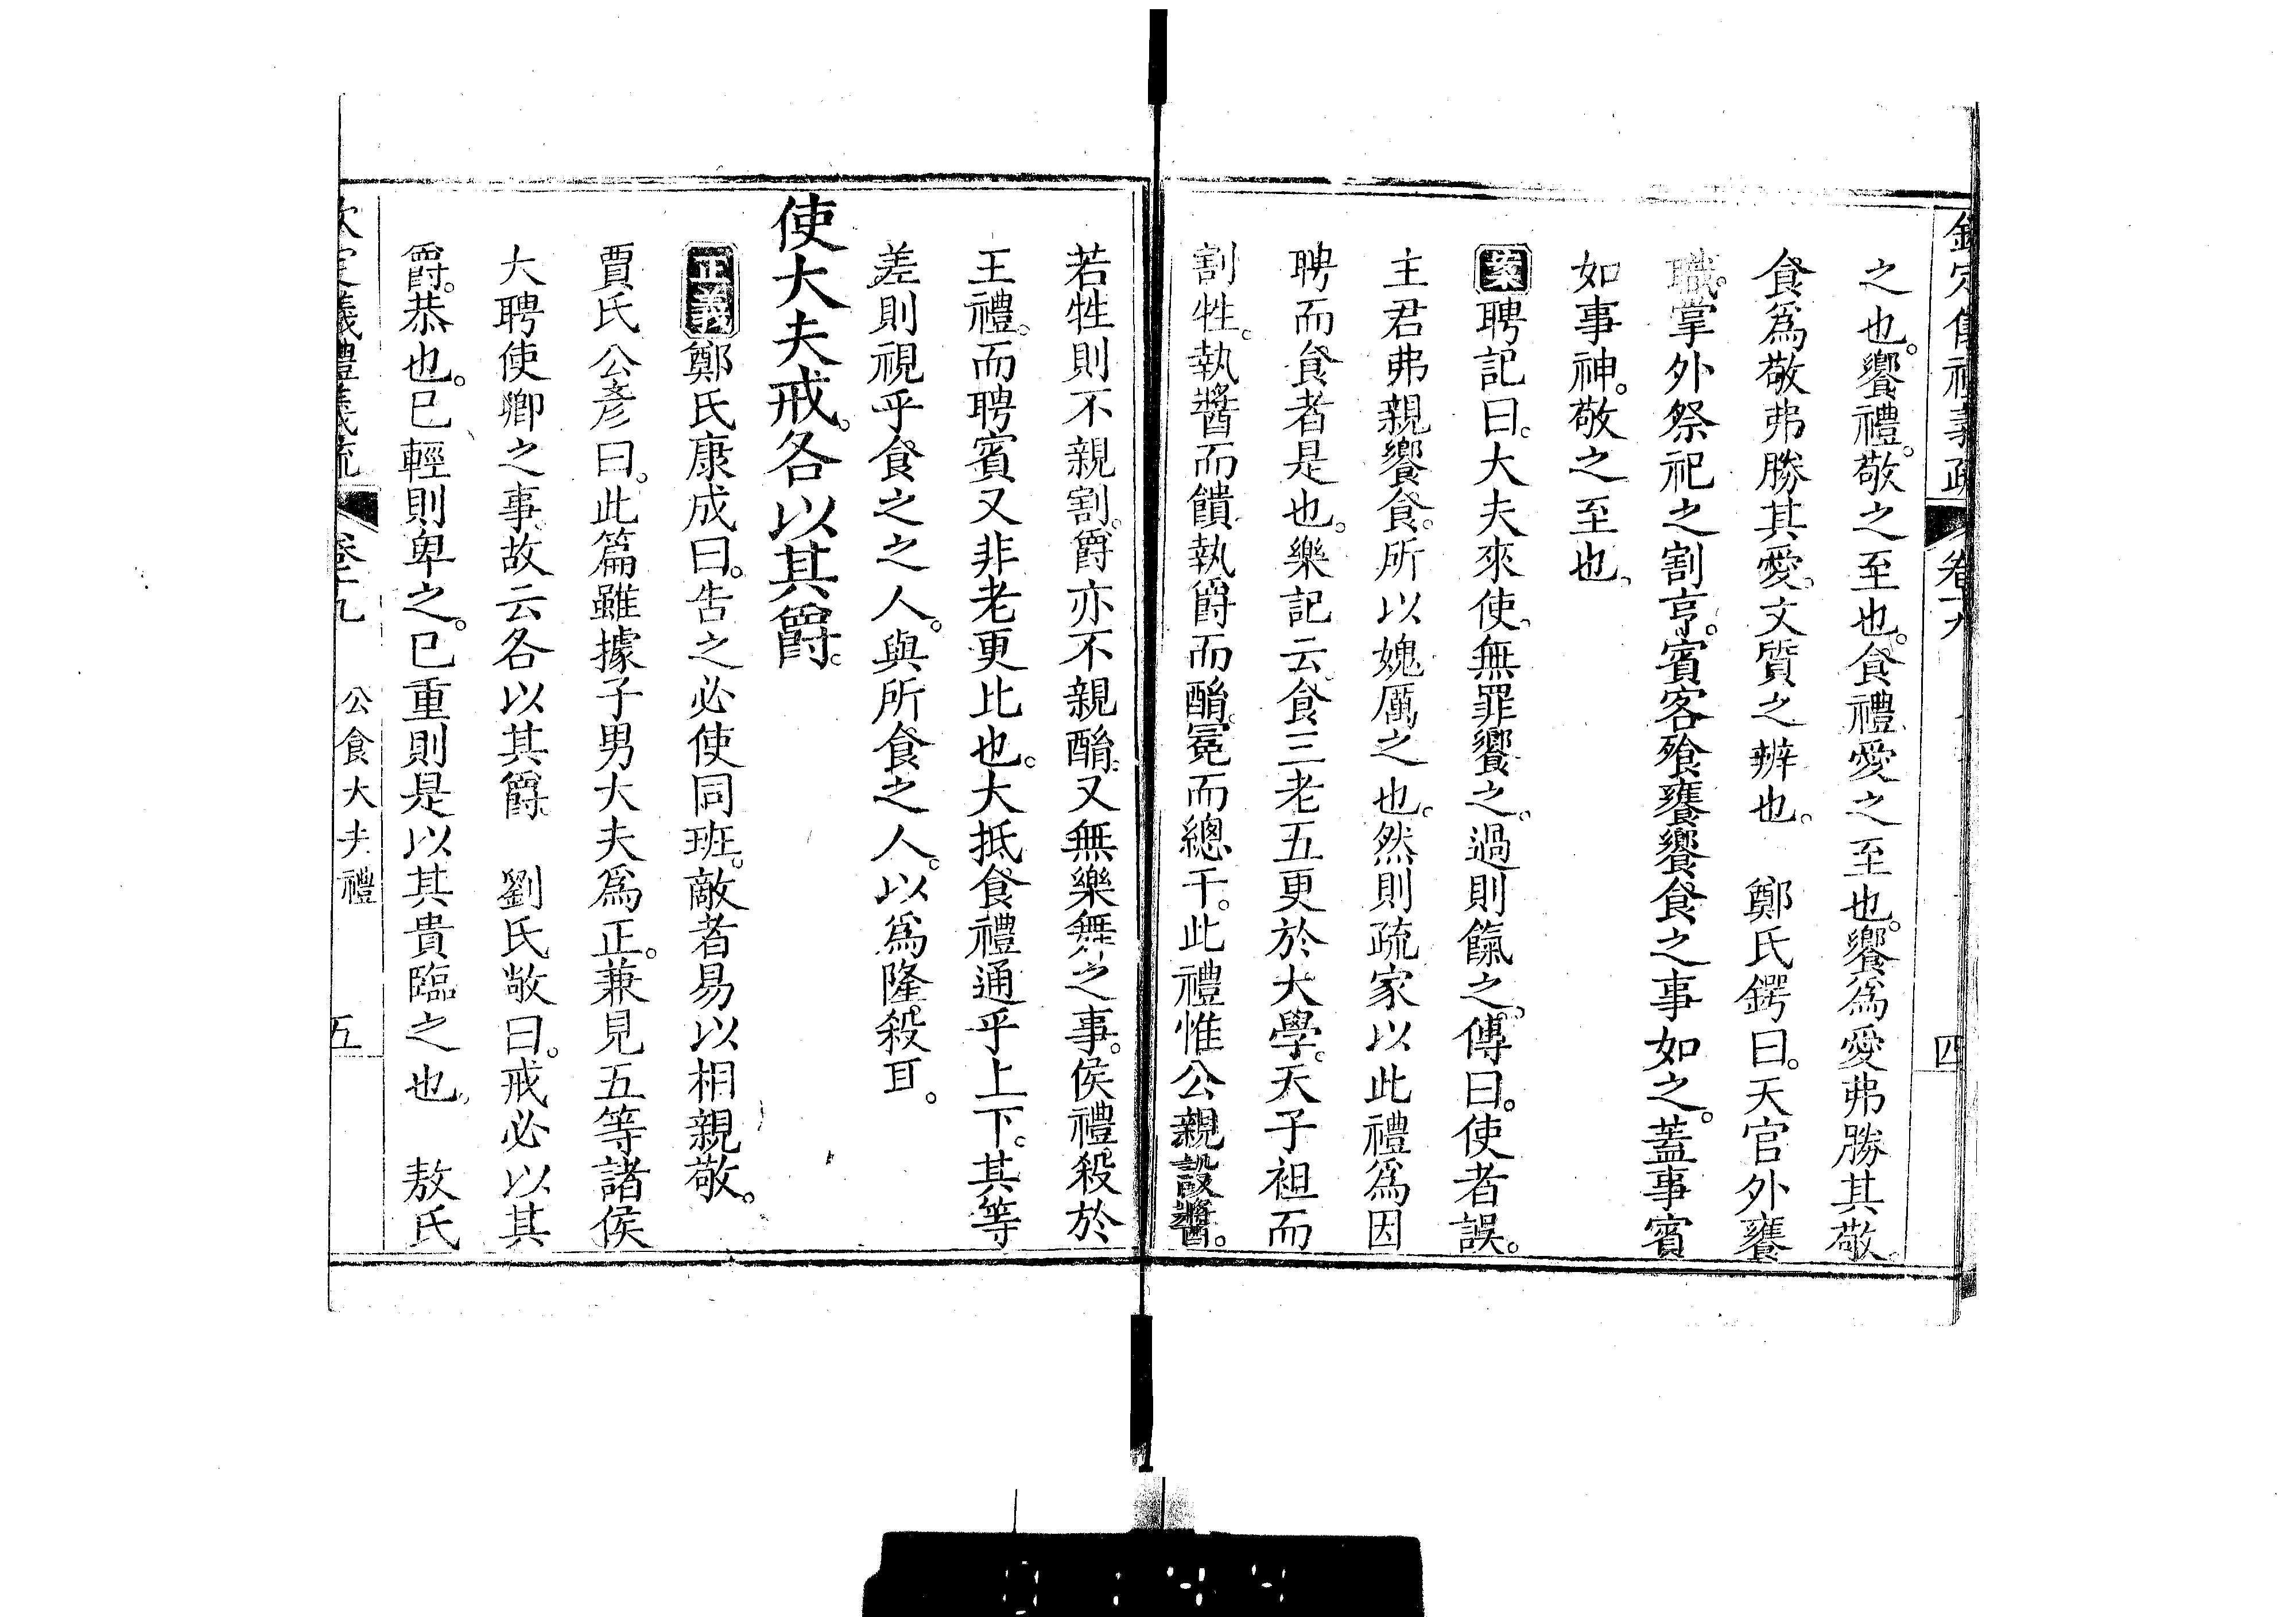 欽定儀禮義疏 卷十九 四
之也。饗禮。敬之至也。食禮愛之至也。饗爲愛弗勝其敬。
食爲敬弗勝其愛。文質之辨也。 鄭氏鍔曰。天官外饔
職。掌外祭祀之割亨。賓客飱饔饗食之事如之。蓋事賓
如事神。敬之至也。
案聘記曰。大夫來使。無罪饗之。過則餼之。傳曰。使者誤。
主君弗親饗食。所以媿厲之也。然則疏家以此禮爲因
聘而食者是也。樂記云。食三老五更於大學。天子袒而
割牲。執醬而饋。執爵而酳。冕而總干。此禮惟公親設醬。
若牲則不親割。爵亦不親酳。又無樂舞之事。侯禮殺於
王禮。而聘賓又非老更比也。大抵食禮通乎上下。其等
差則視乎食之之人。與所食之人。以爲隆殺耳。
使大夫戒。各以其爵。
正義鄭氏康成曰。告之必使同班。敵者易以相親敬。
賈氏公彥曰。此篇雖據子男大夫爲正。兼見五等諸侯
大聘使卿之事。故云各以其爵。 劉氏敞曰。戒必以其
爵。恭也。已輕則卑之。已重則是以其貴臨之也。 敖氏
欽定儀禮義疏 卷十九 公食大夫禮 五